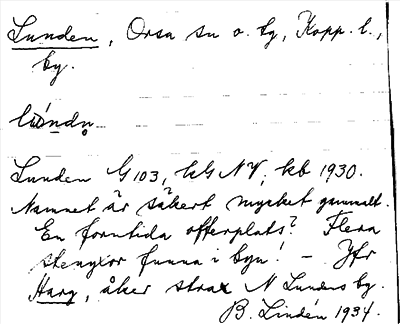 Lunden, Orsa sn o. by, Kopp. l.,
by.
Lunden G 103, kG NV, kb 1930.
Namnet är säkert mycket gammalt.
En forntida offerplats? Flera
stenyxor funna i byn! – Jfr
Harg, åker strax N Lundens by.
B. Lindén 1934.